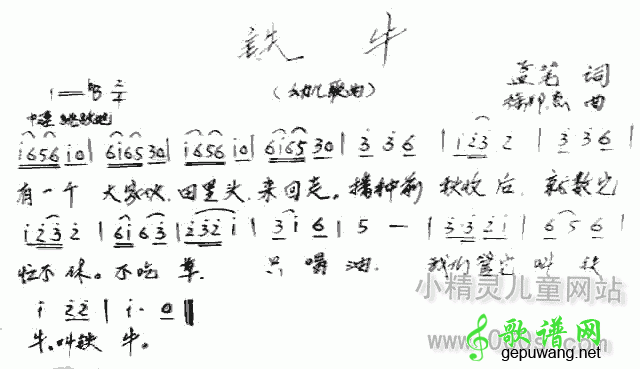 铁 牛
(幼儿歌曲)
1=♭B 2/4
词
曲
中速
i656 i0 | 6i65 30 | i656 i0 | 6i65 30 | 3 36 | i23 2 | 3 36 |
有一个 大家伙,田里头,来回走。播种前 秋收后,就数它
i23 2 | 6i 63 | 232 i | 3i 6 | 5 — | 3·3 2i | 65 6 |
忙不休。不吃草,只喝油,我们管它叫铁
i 22 | i· 0 ‖
牛,叫铁 牛。
小精灵儿童网站
歌谱网
gepuwang.net